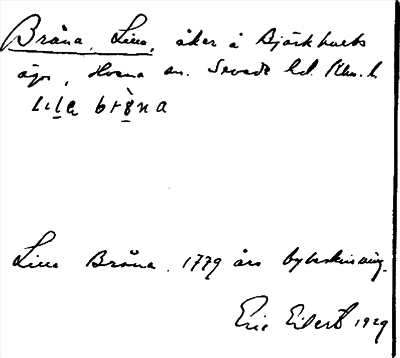 Bråna, Lilla, åker å Björkhults
ägor, Hvena sn. Sevede hd. Klm. l.
lila bråna
Lilla Bråna. 1779 års bybeskrivning.
Eric Eilert 1929